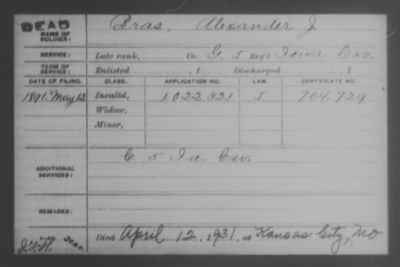 DEAD
NAME OF SOLDIER:
Pras, Alexander J
SERVICE:
Late rank, Co. G, 5 Reg't Iowa Cav.
TERM OF SERVICE:
Enlisted , 1 Discharged , 1
DATE OF FILING. CLASS. APPLICATION NO. LAW. CERTIFICATE NO.
1891 May 12 Invalid, 1.022.321 J 704.729
Widow,
Minor,
ADDITIONAL SERVICES:
C. 5 Ia. Cav.
REMARKS:
Died April 12, 1931, at Kansas City, Mo